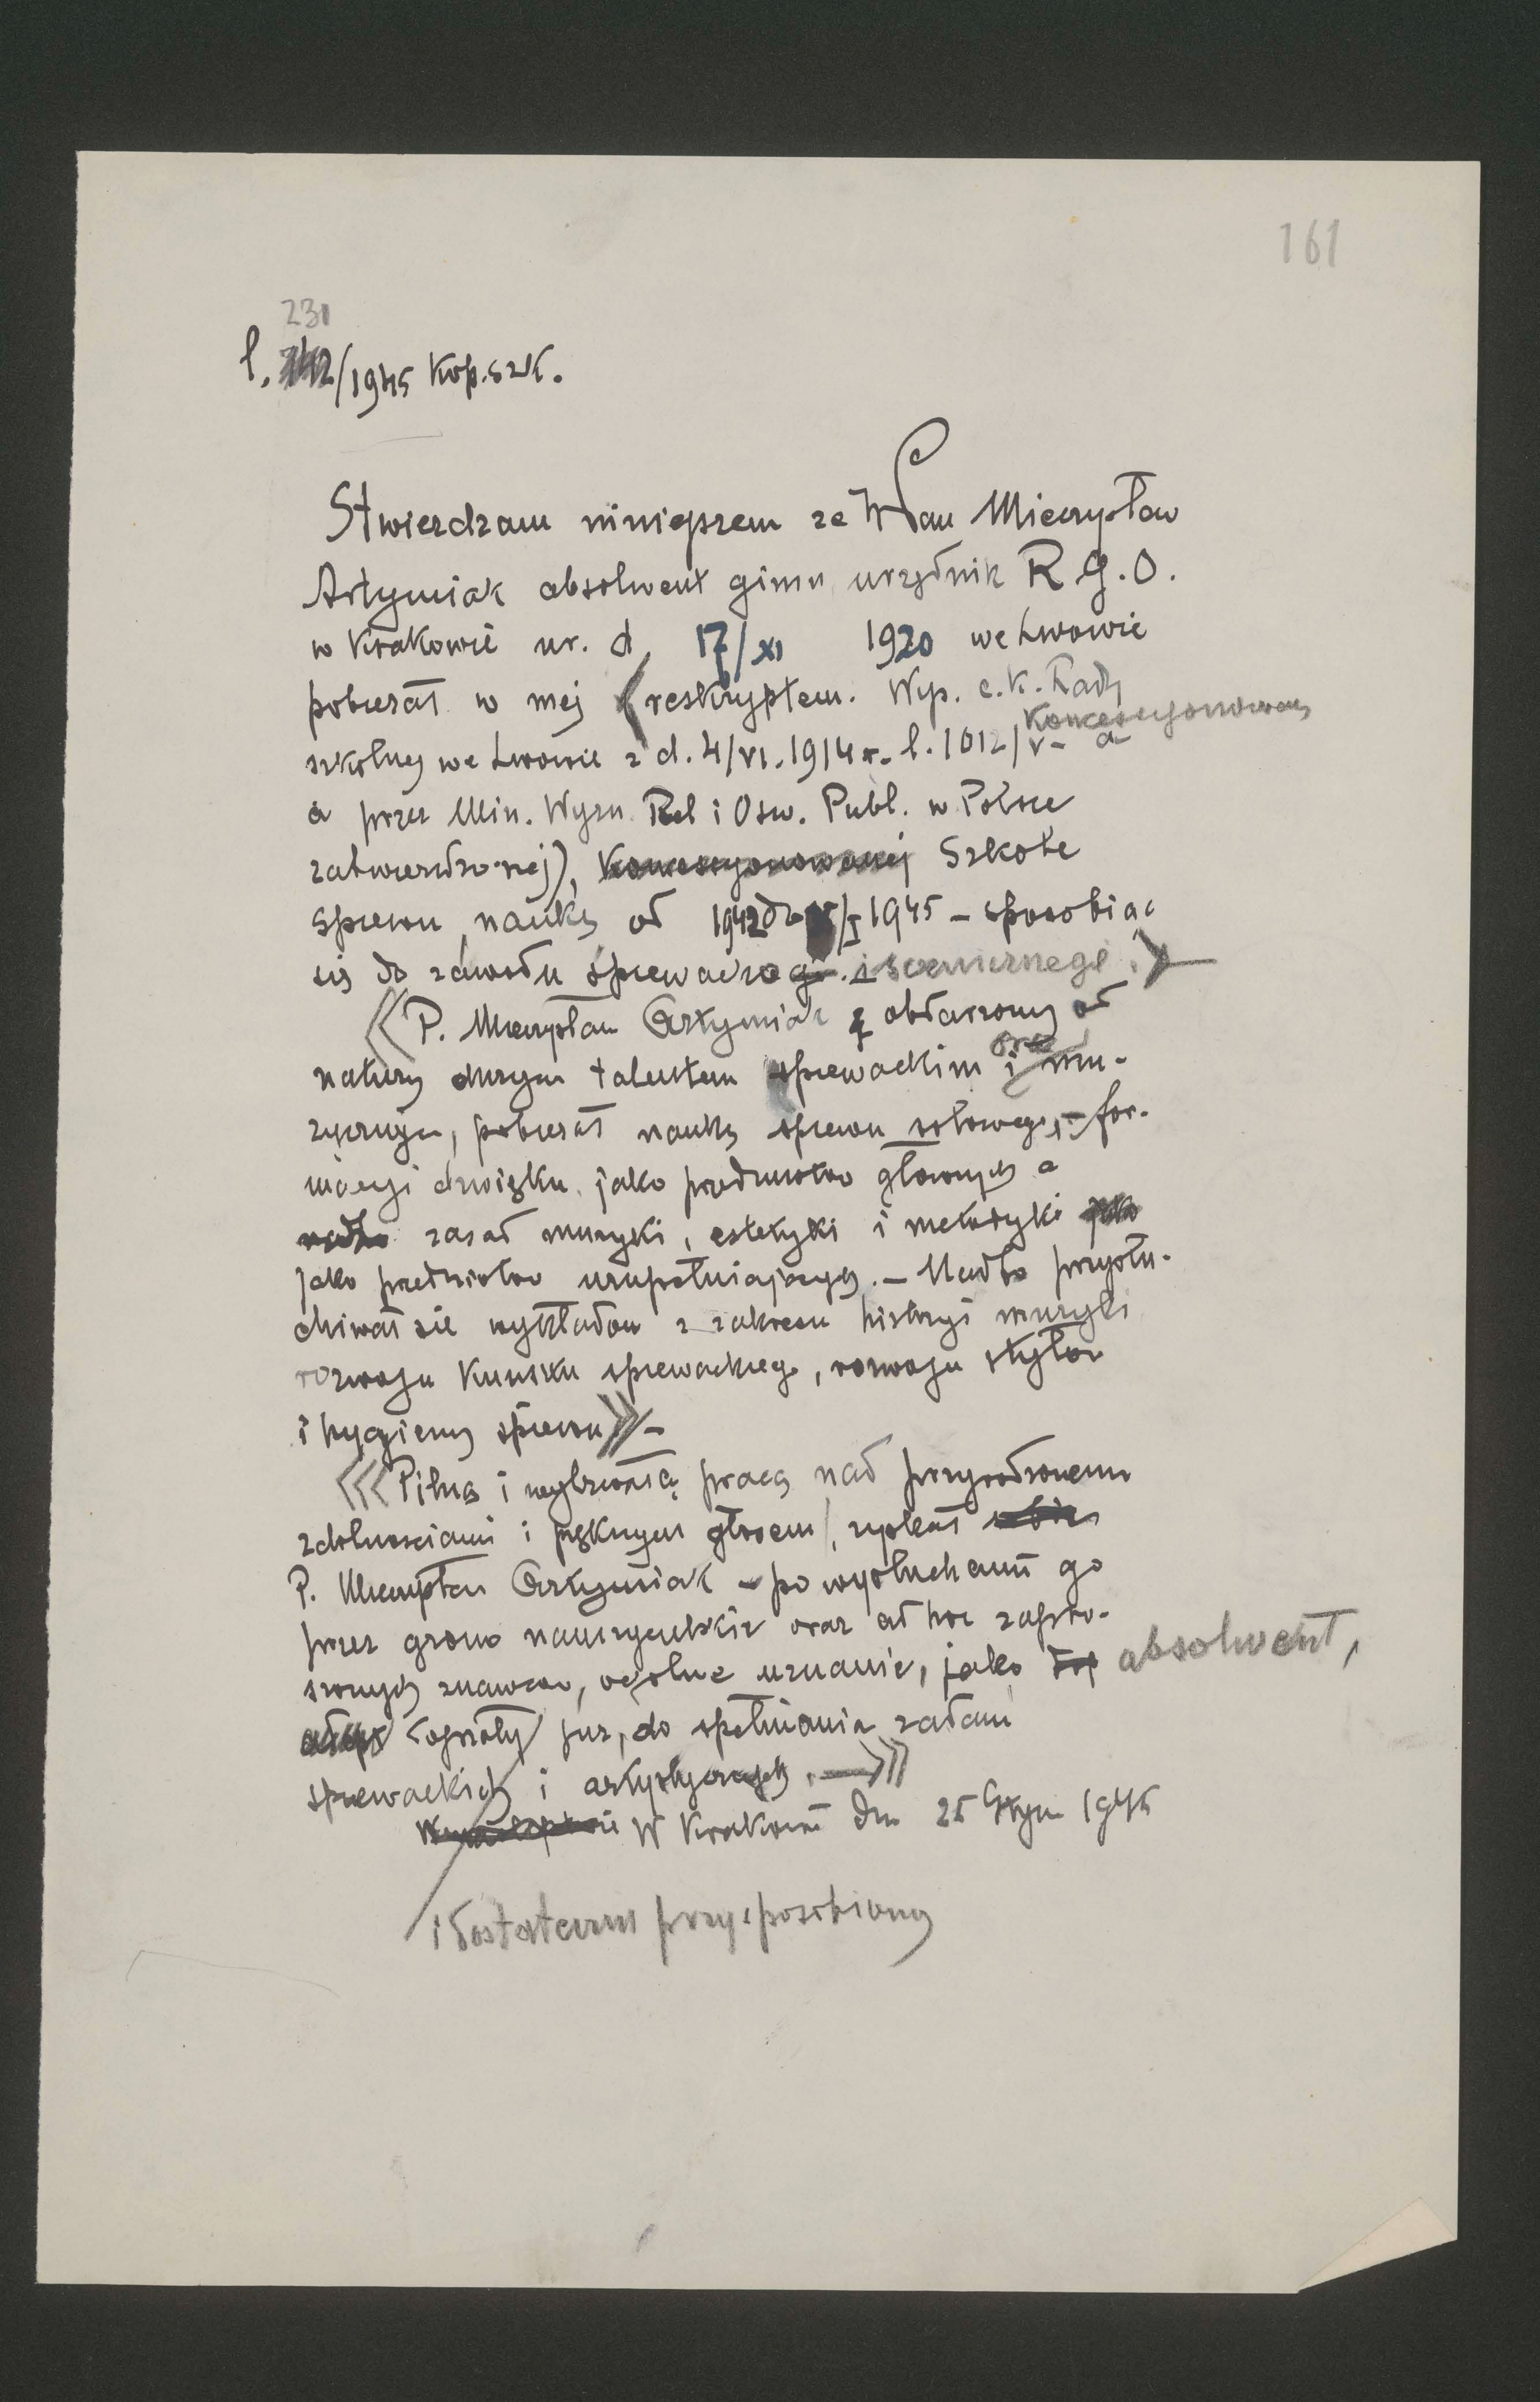 161
231
l. /1945 Kop. szk.
Stwierdzam niniejszem ze Pan Mieczysław
Artymiak absolwent gimn. urzędnik R.G.O.
w Krakowie ur. d. 17/XI 1920 we Lwowie
pobierał w mej (reskryptem. Wys. c.k. Rady
Koncesyonowanej
szkolnej we Lwowie z d. 4/VI. 1914 r. l. 1012/V- a
a przez Min. Wyzn. Rel i Osw. Publ. w Polsce
zatwierdzonej), Koncesyonowanej Szkole
spiewu naukę od 1942 do /I 1945 – sposobiąc
się do zawodu śpiewaczego. i scenicznego.
P. Mieczysław Artymiak obdarzony od
natury dużym talentem spiewackim i oraz mu-
zycznym, pobierał naukę spiewu solowego, – for-
macyi dzwięku. jako przedmiotów głównych a
nadto zasad muzyki, estetyki i metodyki jako
jako przedmiotów uzupełniających. – Nadto przysłu-
chiwał sie wykładom z zakresu historyi muzyki
rozwoju kunsztu spiewackiego, rozwoju stylów
i hygieny śpiewu –
Pilną i wytrwałą pracą nad przyrodzonemi
zdolnosciami i pięknym głosem, zyskał sobie
P. Mieczysław Artymiak – po wysłuchaniu go
przez grono nauczycielskie oraz ad hoc zapro-
szonych znawców, ogólne uznanie, jako absolwent,
dojrzały juz, do spełniania zadań
spiewackich i artystycznych. –
W Krakowie dn 25 Stycz 1945
i dostatecznie przysposobiony